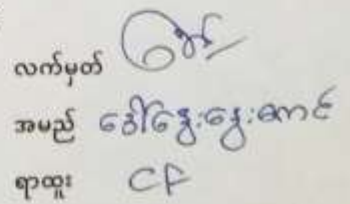 လက်မှတ်
အမည် ဒေါ်နွေးနွေးအောင်
ရာထူး CF